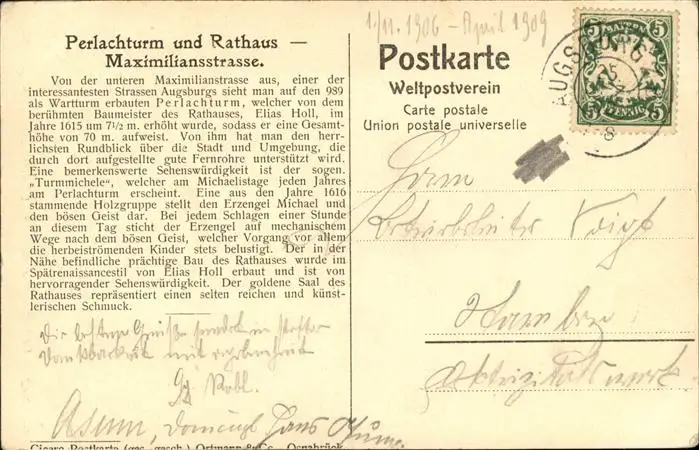 Perlachturm und Rathaus —
Maximiliansstrasse.
Von der unteren Maximilianstrasse aus, einer der
interessantesten Strassen Augsburgs sieht man auf den 989
als Wartturm erbauten Perlachturm, welcher von dem
berühmten Baumeister des Rathauses, Elias Holl, im
Jahre 1615 um 7½ m. erhöht wurde, sodass er eine Gesamt-
höhe von 70 m. aufweist. Von ihm hat man den herr-
lichsten Rundblick über die Stadt und Umgebung, die
durch dort aufgestellte gute Fernrohre unterstützt wird.
Eine bemerkenswerte Sehenswürdigkeit ist der sogen.
„Turmmichele", welcher am Michaelistage jeden Jahres
am Perlachturm erscheint. Eine aus dem Jahre 1616
stammende Holzgruppe stellt den Erzengel Michael und
den bösen Geist dar. Bei jedem Schlagen einer Stunde
an diesem Tag sticht der Erzengel auf mechanischem
Wege nach dem bösen Geist, welcher Vorgang vor allem
die herbeiströmenden Kinder stets belustigt. Der in der
Nähe befindliche prächtige Bau des Rathauses wurde im
Spätrenaissancestil von Elias Holl erbaut und ist von
hervorragender Sehenswürdigkeit. Der goldene Saal des
Rathauses repräsentiert einen selten reichen und künst-
lerischen Schmuck.
Die besten Grüße sendet in
Dankbarkeit mit
Cicero-Postkarte (ges. gesch.) Ortmann & Co., Osnabrück
1./11. 1906 – April 1909
Postkarte
Weltpostverein
Carte postale
Union postale universelle
BAYERN
5 5
5 PFENNIG 5
AUGSBURG
Herrn
Voigt